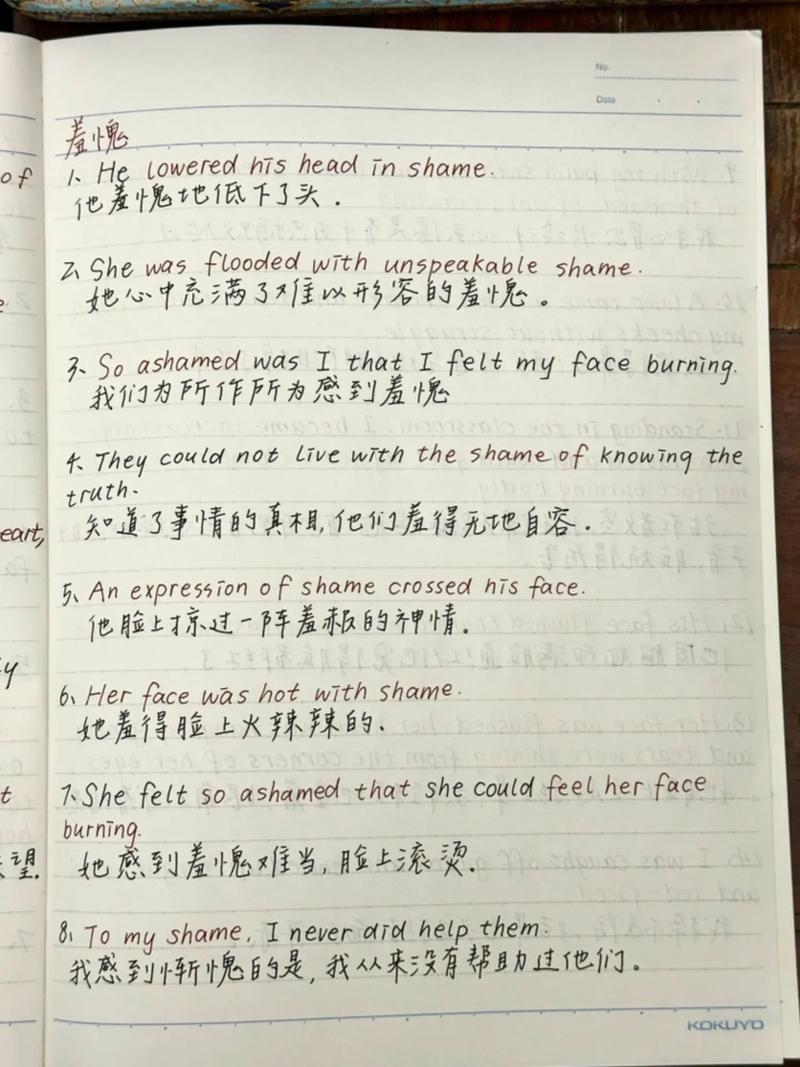 No.
Date
羞愧
1、He lowered his head in shame.
他羞愧地低下了头.
2、She was flooded with unspeakable shame.
她心中充满了难以形容的羞愧。
3、So ashamed was I that I felt my face burning.
我们为所作所为感到羞愧
4、They could not live with the shame of knowing the
truth.
知道了事情的真相,他们羞得无地自容.
5、An expression of shame crossed his face.
他脸上掠过一阵羞赧的神情.
6、Her face was hot with shame.
她羞得脸上火辣辣的.
7、She felt so ashamed that she could feel her face
burning.
她感到羞愧难当,脸上滚烫.
8、To my shame, I never did help them.
我感到惭愧的是,我从来没有帮助过他们。
KOKUYO
of
eart,
y
t
望.